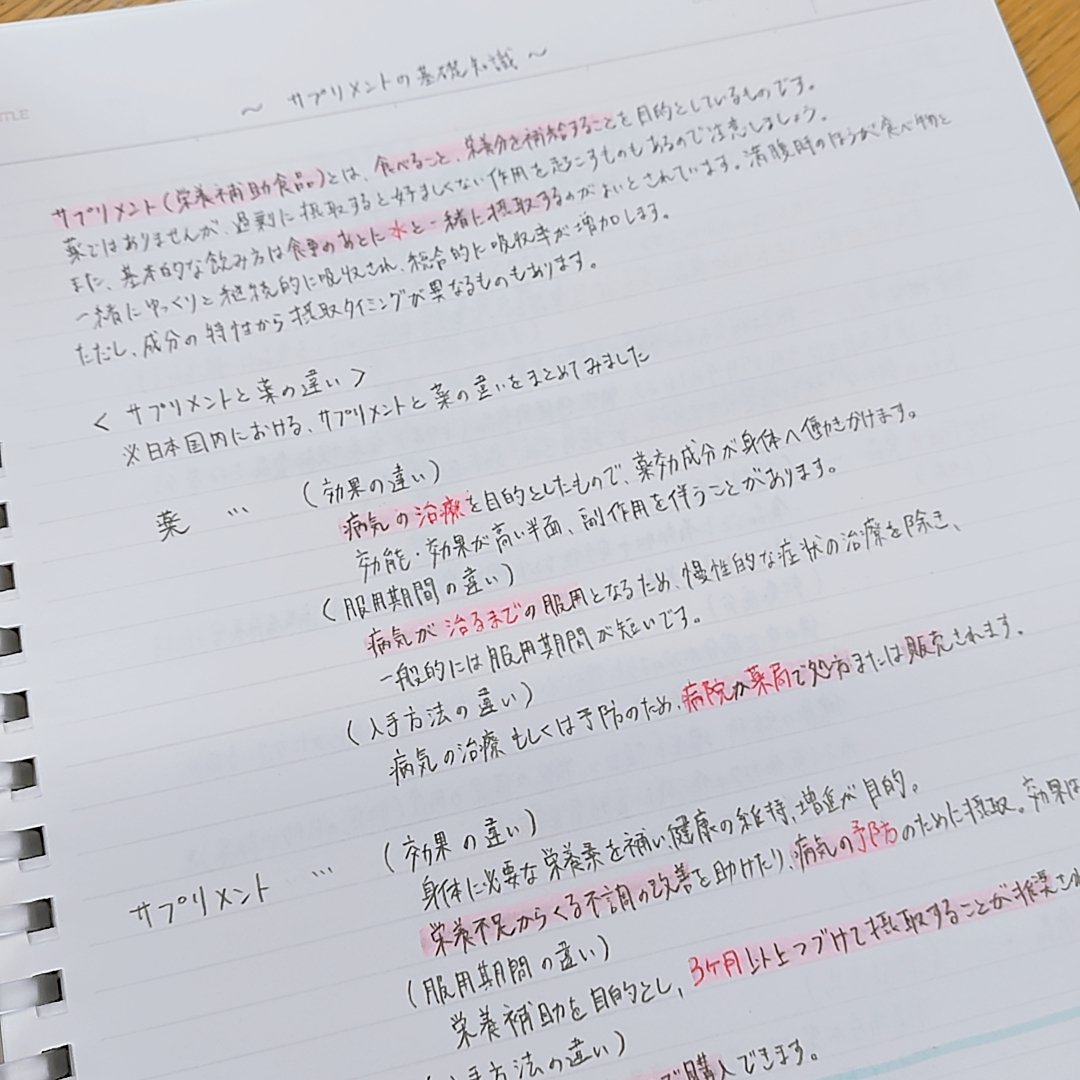 TLE
～ サプリメントの基礎知識 ～
サプリメント(栄養補助食品)とは、食べること、栄養分を補給することを目的としているものです。
薬ではありませんが、過剰に摂取すると好ましくない作用を起こすものもあるので注意しましょう。
また、基本的な飲み方は食事のあとに水と一緒に摂取するのがよいとされています。満腹時のほうが食べ物と
一緒にゆっくりと継続的に吸収され、総合的に吸収率が増加します。
ただし、成分の特性から摂取タイミングが異なるものもあります。
＜サプリメントと薬の違い＞
※日本国内における、サプリメントと薬の違いをまとめてみました
薬 … (効果の違い)
病気の治療を目的としたもので、薬効成分が身体へ働きかけます。
効能・効果が高い半面、副作用を伴うことがあります。
(服用期間の違い)
病気が治るまでの服用となるため、慢性的な症状の治療を除き、
一般的には服用期間が短いです。
(入手方法の違い)
病気の治療もしくは予防のため、病院か薬局で処方または販売されます。
サプリメント … (効果の違い)
身体に必要な栄養素を補い健康の維持、増進が目的。
栄養不足からくる不調の改善を助けたり、病気の予防のために摂取。効果は
(服用期間の違い)
栄養補助を目的とし、3ヶ月以上つづけて摂取することが推奨され
(入手方法の違い)
で購入できます。